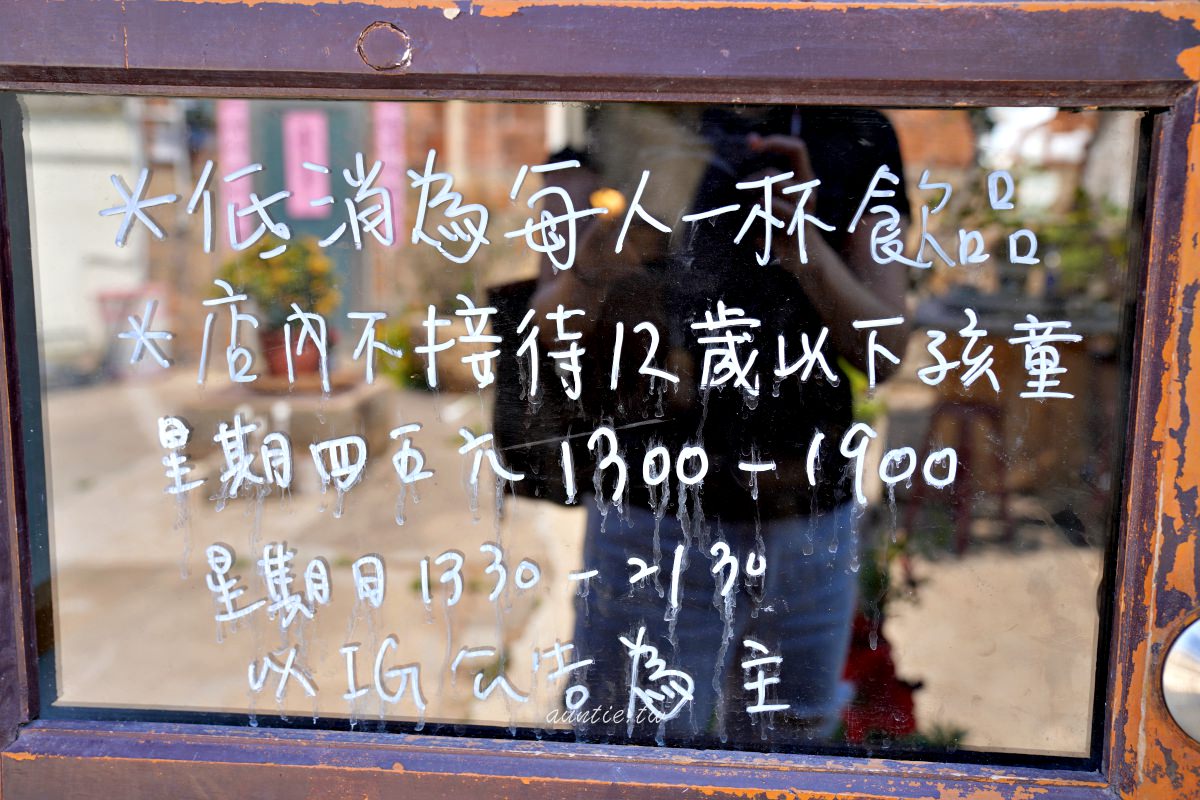 *低消為每人一杯飲品
*店內不接待12歲以下孩童
星期四五六 1300-1900
星期日 1330-2130
以IG公告為主
auntie.tw